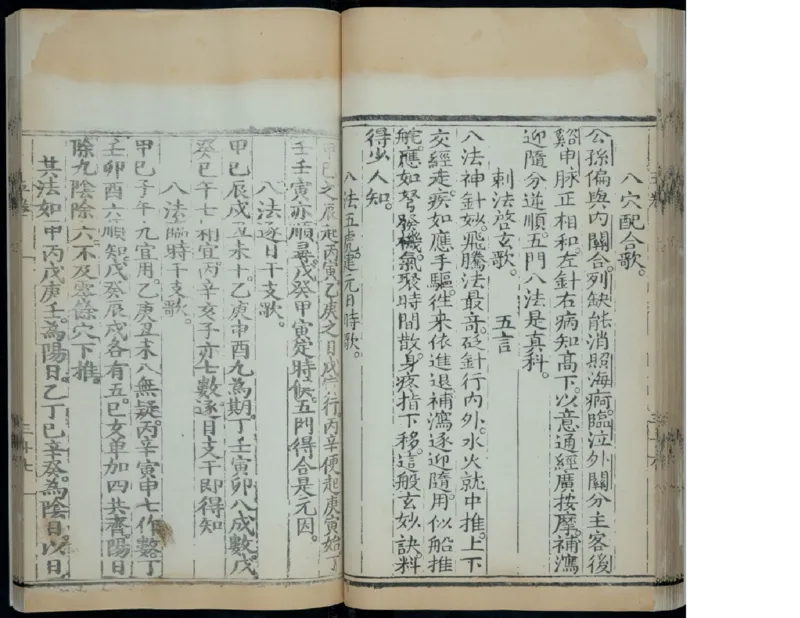 八穴配合歌。
公孫偏與内關合。列缺能消照海疴。臨泣外關分主客後
谿申脉正相和。左針右病知高下。以意通經廣按摩。補瀉
迎隨分逆順五門八法是真科。
刺法啓玄歌。 五言
八法神針妙。飛騰法最奇。砭針行内外。水火就中推。上下
交經走。疾如應手驅。往來依進退補瀉逐迎隨。用似船推
舵。應如弩發機。氣聚時間散。身疼指下移。這般玄妙訣料
得少人知。
八法五虎建元日時歌。
甲己之辰起丙寅乙庚之日戊寅行丙辛便起庚寅始丁
壬壬寅亦順尋。戊癸甲寅定時候。五門得合是元因。
八法逐日干支歌。
甲巳辰戌丑未十乙庚申酉九為期。丁壬寅卯八成數。戊
癸巳午七相宜。丙辛亥子亦七數逐日支干即得知
八法臨時干支歌。
甲巳子午九宜用。乙庚丑未八無疑。丙辛寅申七作數丁
壬卯酉六順知。戊癸辰戌各有五。巳亥单加四共齊。陽日
除九陰除六不及零餘穴下推。
其法如甲丙戊庚壬。為陽日。乙丁巳辛癸。為陰日以日